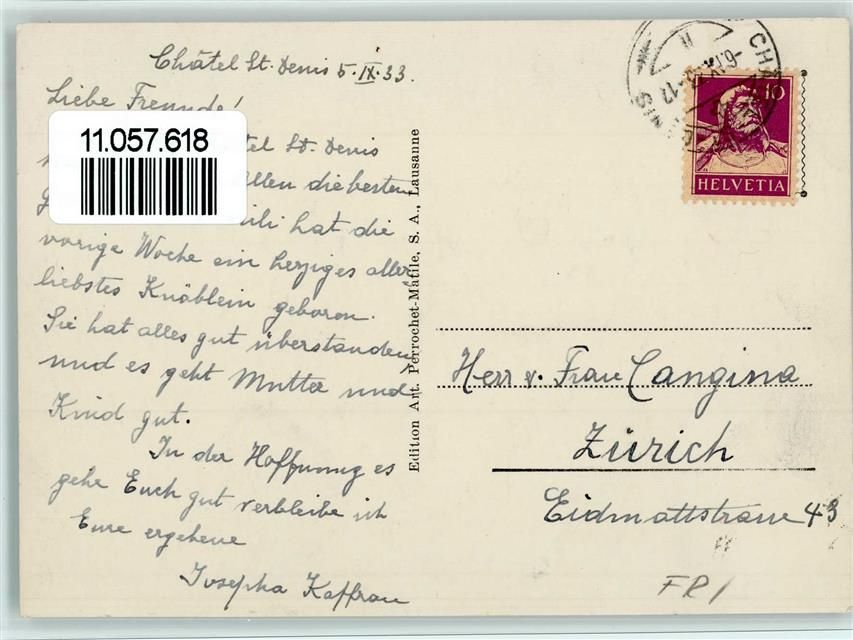 Châtel St. Denis 5.IX.33.
Liebe Freunde!
11.057.618
tel St. Denis
allen die besten
hat die
vorige Woche ein herziges aller
liebstes Knäblein geboren.
Sie hat alles gut überstanden,
und es geht Mutter und
Kind gut.
In der Hoffnung es
gehe Euch gut verbleibe ich
Eure ergebene
Josepha Kaffrau
Edition Art. Perrochet-Matile, S. A., Lausanne
10
HELVETIA
Herr v. Frau Cangina
Zürich
Eidmattstrasse 43
FR/